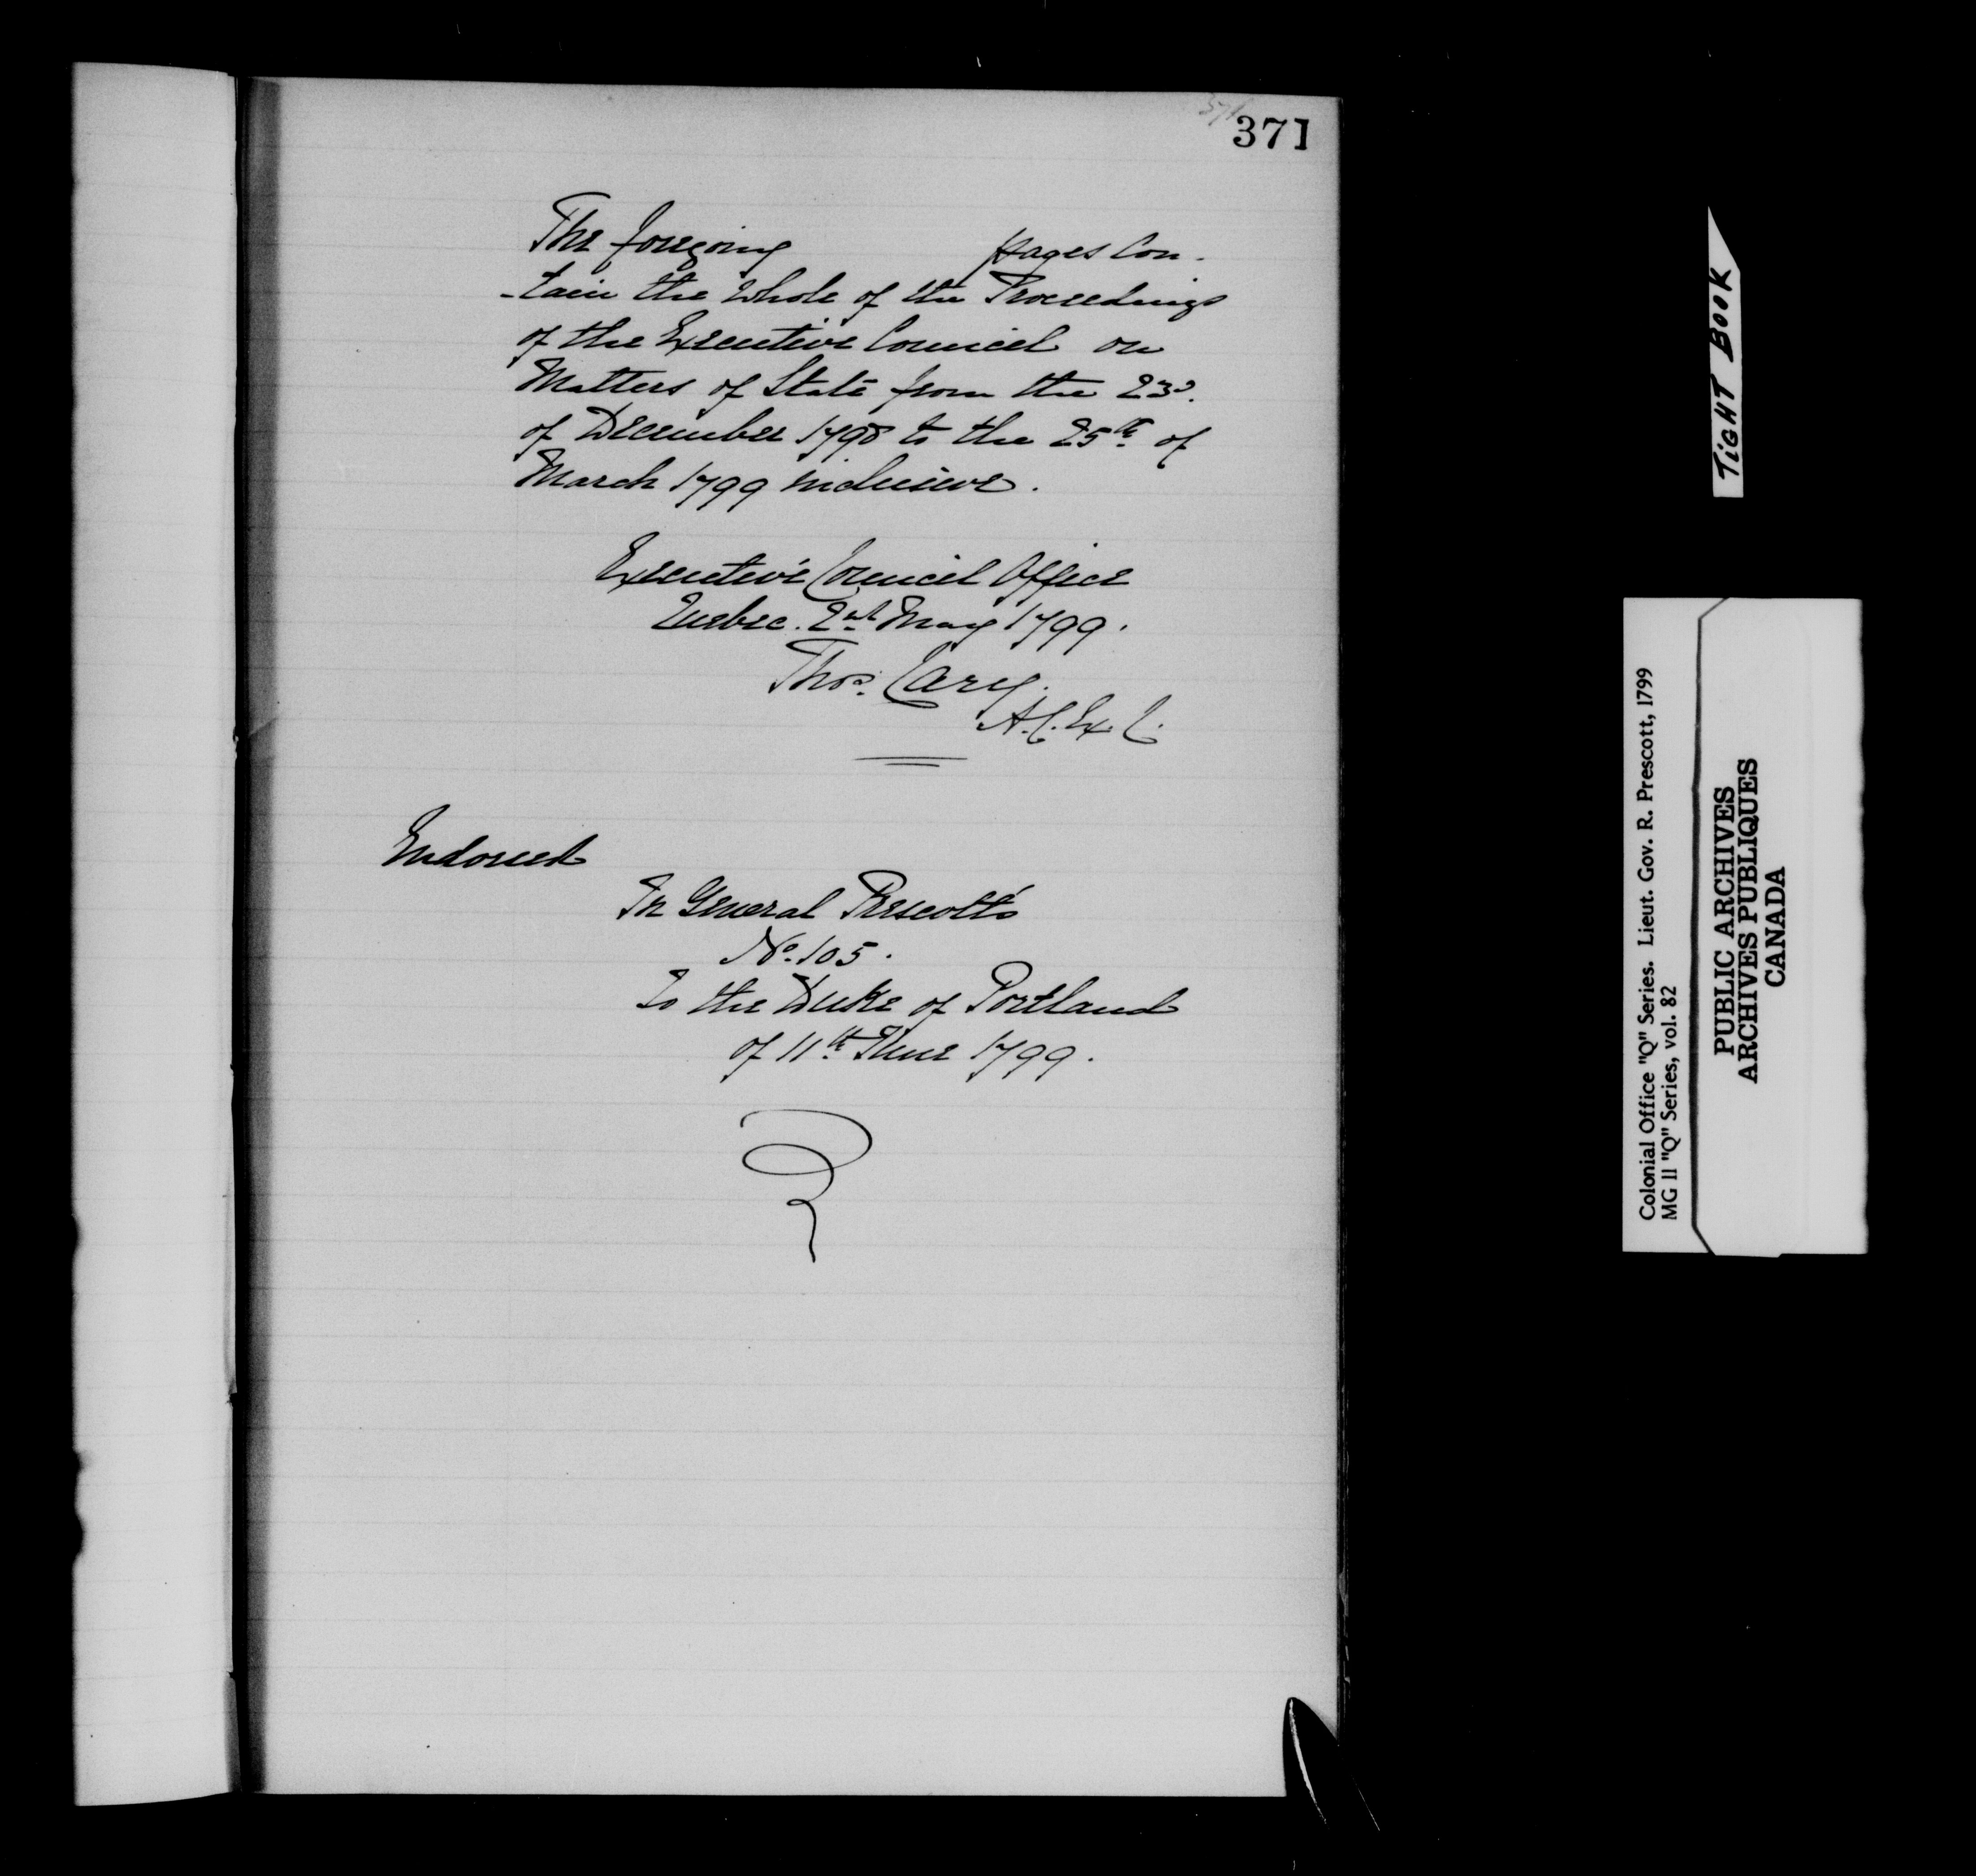 371
371
The foregoing pages Con-
-tain the Whole of the Proceedings
of the Executive Council on
Matters of State from the 23d.
of December 1798 to the 25th of
March 1799 inclusive.
Executive Council Office
Quebec. 2nd May 1799.
Thos. Cary.
A.C. Ex. C.
Endorsed
In General Prescott's
No. 105.
To the Duke of Portland
of 11th June 1799.
TIGHT BOOK
Colonial Office "Q" Series. Lieut. Gov. R. Prescott, 1799
MG 11 "Q" Series, vol. 82
PUBLIC ARCHIVES
ARCHIVES PUBLIQUES
CANADA